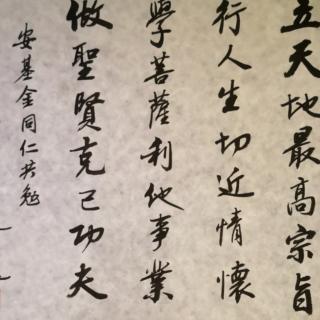 立天地最高宗旨
行人生切近情懷
學菩薩利他事業
做聖賢克己功夫
安基金同仁共勉